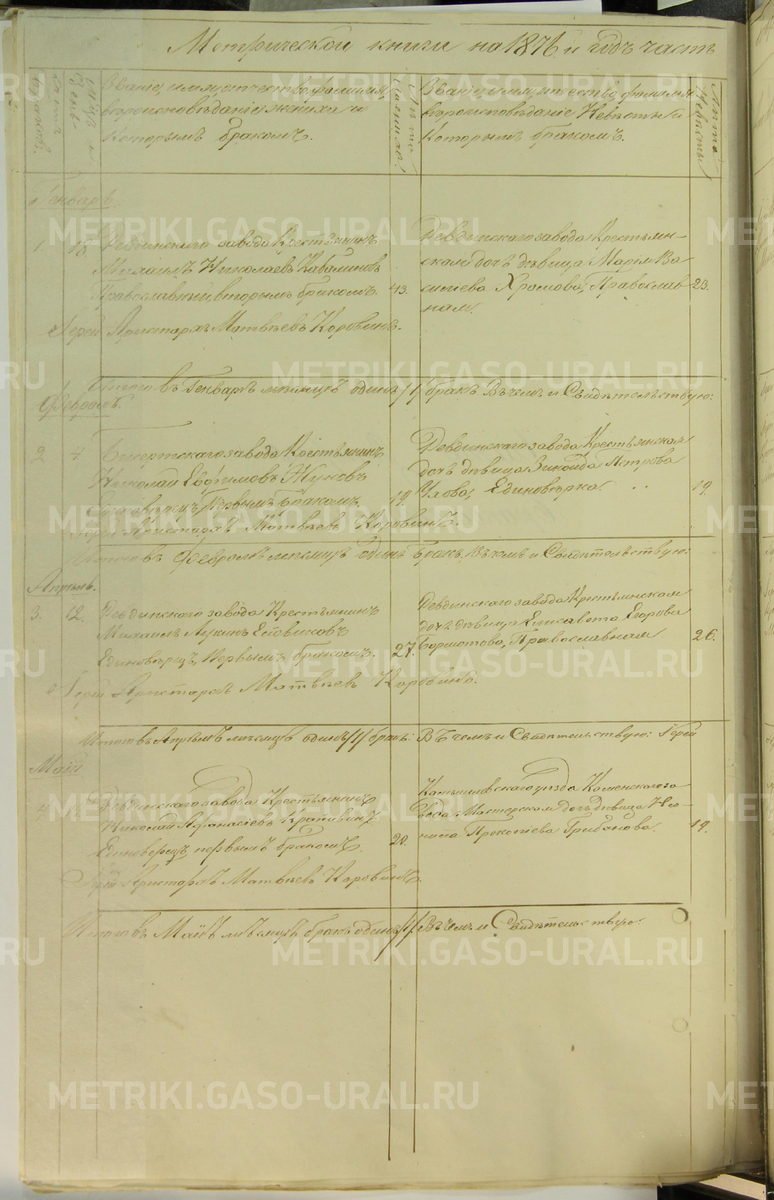 Метрической книги на 1876й годъ часть
Званіе, имя, отчество, фамилія,
вѣроисповѣданіе жениха и
которымъ бракомъ.
Лѣта
Званіе, имя, отчество, фамилія
вѣроисповѣданіе Невѣсты и
которымъ бракомъ.
Лѣта
Невѣсты
Генварь.
1. 18. Ревдинскаго завода Крестьянинъ
Михаилъ Николаевъ
Православный вторымъ бракомъ. 43.
Ревдинскаго завода Крестьян-
ская дочь дѣвица Марія Ва-
сильева Храмова, Православ- 23.
ная.
Іерей Аристархъ Матвѣевъ Коровинъ.
Итого въ Генварѣ мѣсяцѣ одинъ /1/ бракъ Въ чемъ и Свидѣтельствую:
Февраль.
2. 4. Бисертскаго завода Крестьянинъ
Николай Ефимовъ Жуковъ
Единовѣрецъ, Первымъ Бракомъ. 19.
Ревдинскаго завода Крестьянская
дочь дѣвица Зиновія Петрова
Единовѣрка. 19.
Іерей Аристархъ Матвѣевъ Коровинъ.
Итого въ Февралѣ мѣсяцѣ одинъ бракъ, Въ чемъ и Свидѣтельствую:
Апрѣль.
3. 12. Ревдинскаго завода Крестьянинъ
Михаилъ
Единовѣрецъ, Первымъ бракомъ. 27.
Ревдинскаго завода Крестьянская
дочь дѣвица Елисавета Егорова
Православная 26.
Іерей Аристархъ Матвѣевъ Коровинъ.
Итого въ Апрѣлѣ мѣсяцѣ одинъ /1/ бракъ: Въ чемъ и Свидѣтельствую: Іерей
Май
Ревдинскаго завода Крестьянинъ
Николай Афанасіевъ
Единовѣрецъ, первымъ бракомъ. 20.
Камышловскаго уѣзда Каменскаго за-
вода Мастерская дочь дѣвица
Прокопьева 19.
Іерей Аристархъ Матвѣевъ Коровинъ.
Итого въ Маѣ мѣсяцѣ бракъ одинъ /1/ Въ чемъ и Свидѣтельствую:
METRIKI.GASO-URAL.RU